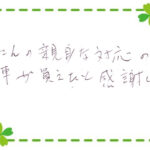 さんの親身な対応の
車が買えたと感謝し